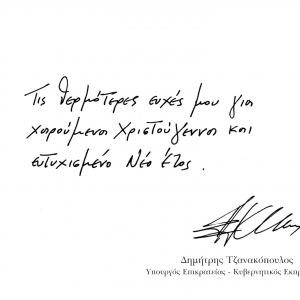 Τις θερμότερες ευχές μου για
χαρούμενα Χριστούγεννα και
ευτυχισμένο Νέο Έτος.
Δημήτρης Τζανακόπουλος
Υπουργός Επικρατείας - Κυβερνητικός Εκπρ